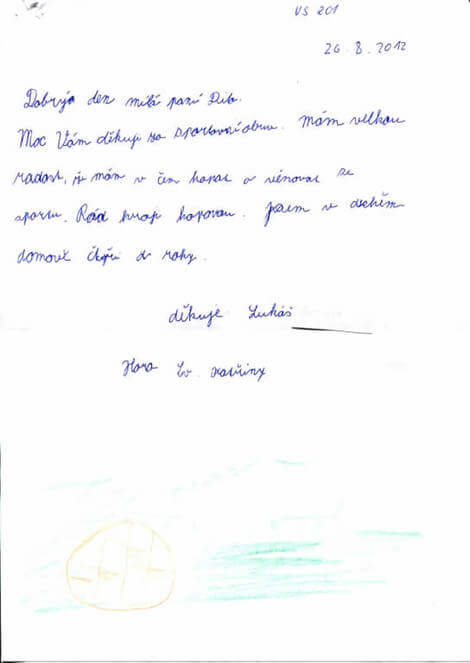 VS 201
26. 8. 2012
Dobrýo den milá paní
Moc Vám děkuji za sportovní obuv. Mám velkou
radost, že mám v čem kopat a věnovat se
sportu. Rád hraji kopanou. Jsem v
domově roky.
děkuje Lukáš
Hora Sv. Kateřiny